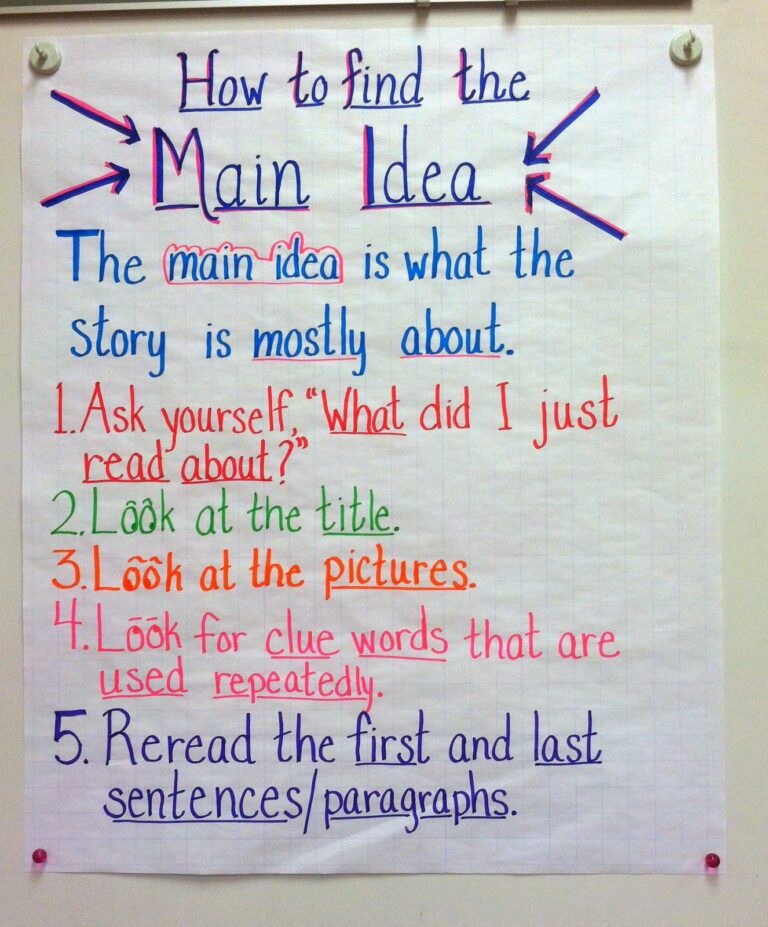 How to find the
Main Idea
The main idea is what the
story is mostly about.
1. Ask yourself, "What did I just
read about?"
2. Look at the title.
3. Look at the pictures.
4. Look for clue words that are
used repeatedly.
5. Reread the first and last
sentences/paragraphs.